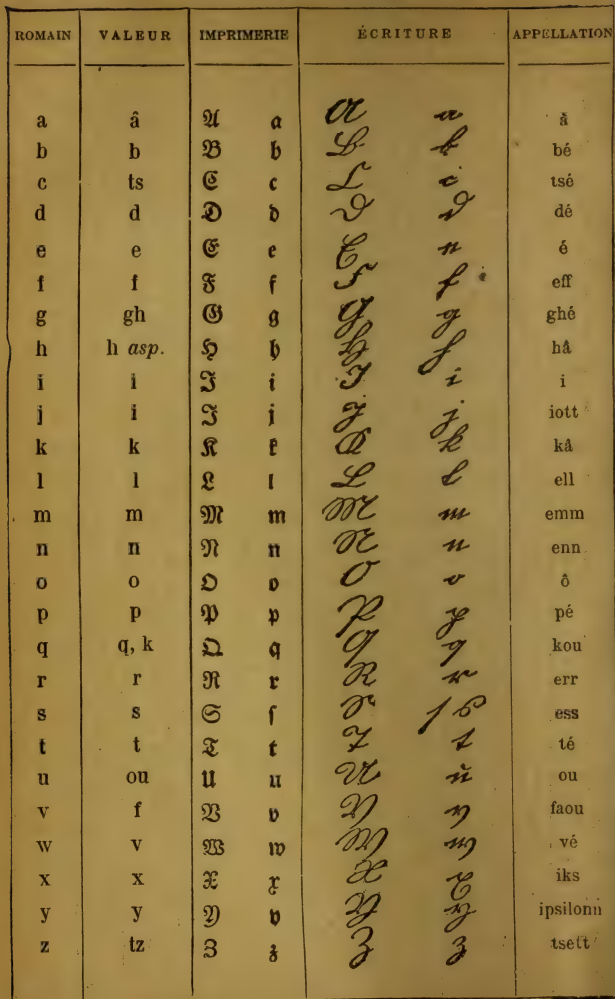 ROMAIN VALEUR IMPRIMERIE ÉCRITURE APPELLATION
a â 𝔄 𝔞 A a â
b b 𝔅 𝔟 B b bé
c ts ℭ 𝔠 C c tsé
d d 𝔇 𝔡 D d dé
e e 𝔈 𝔢 E e é
f f 𝔉 𝔣 F f eff
g gh 𝔊 𝔤 G g ghé
h h asp. ℌ 𝔥 H h hâ
i i ℑ 𝔦 I i i
j i ℑ 𝔧 J j iott
k k 𝔎 𝔨 K k kâ
l l 𝔏 𝔩 L l ell
m m 𝔐 𝔪 M m emm
n n 𝔑 𝔫 N n enn
o o 𝔒 𝔬 O o ô
p p 𝔓 𝔭 P p pé
q q, k 𝔔 𝔮 Q q kou
r r ℜ 𝔯 R r err
s s 𝔖 ſ S ſ s ess
t t 𝔗 𝔱 T t té
u ou 𝔘 𝔲 U u ou
v f 𝔙 𝔳 V v faou
w v 𝔚 𝔴 W w vé
x x 𝔛 𝔵 X x iks
y y 𝔜 𝔶 Y y ipsilonn
z tz ℨ 𝔷 Z z tsett